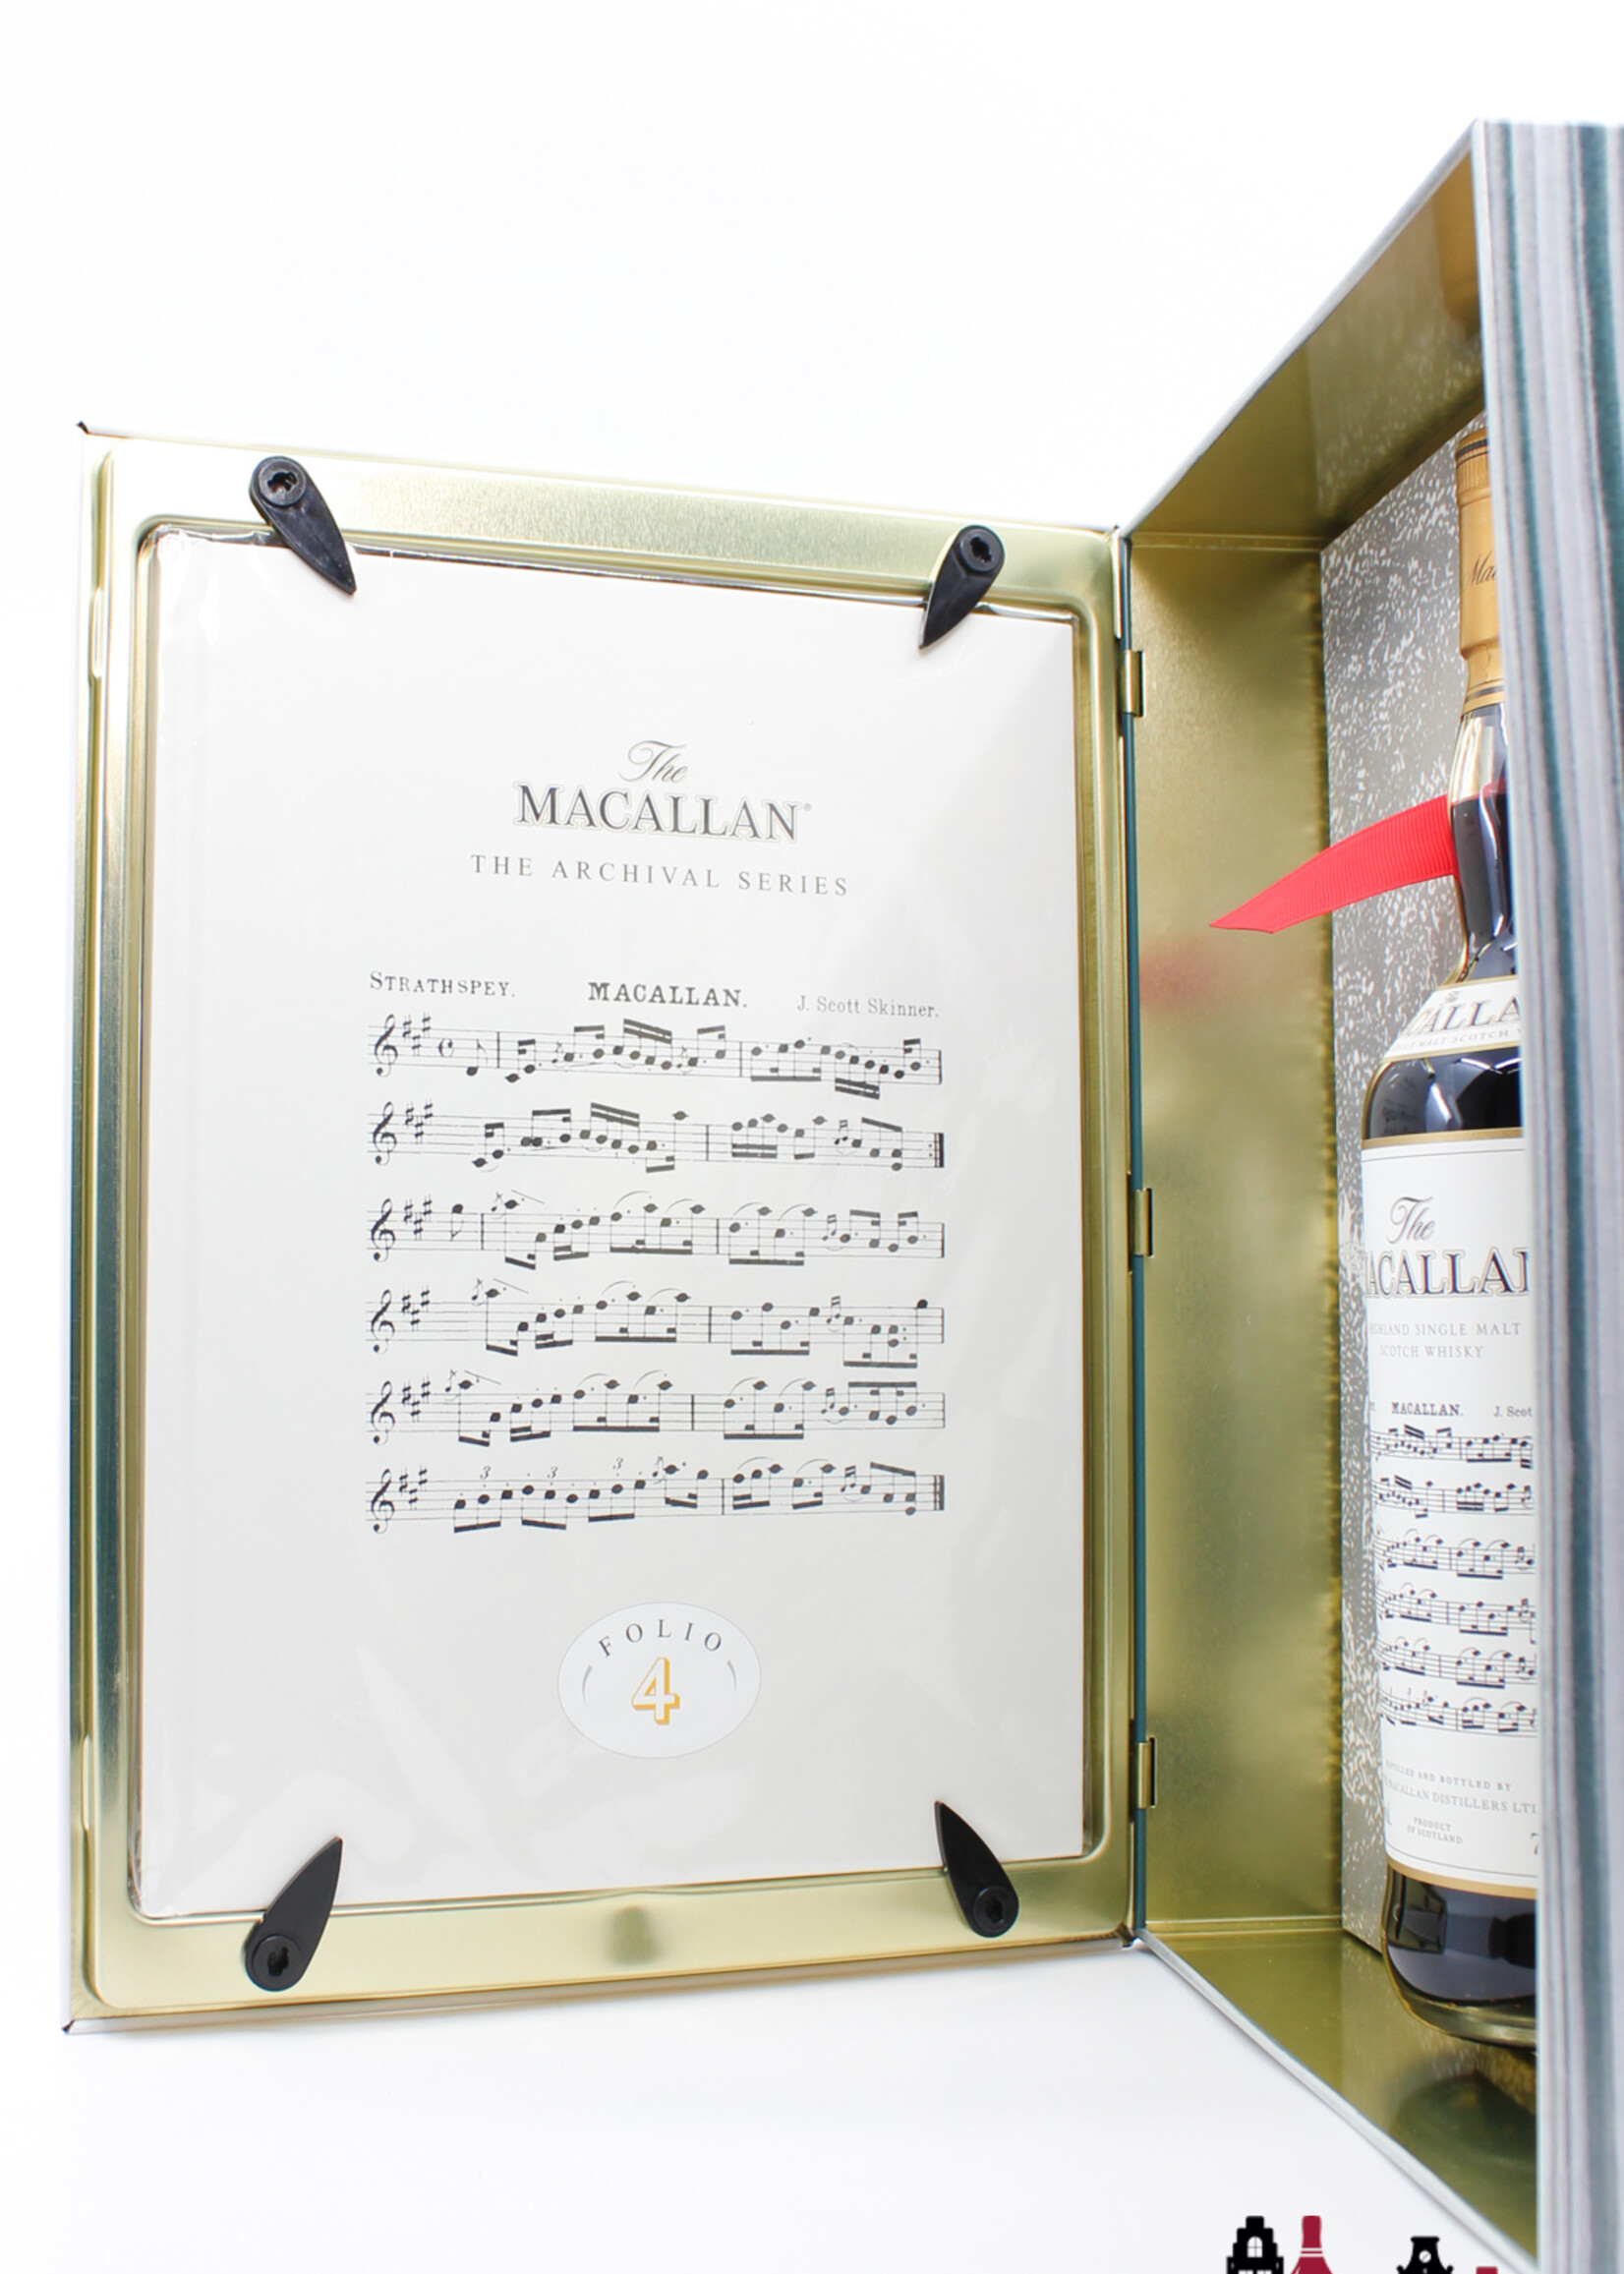 The
MACALLAN®
THE ARCHIVAL SERIES
STRATHSPEY. MACALLAN. J. Scott Skinner.
3 3 3
FOLIO
4
The
MACALLAN
HIGHLAND SINGLE MALT
SCOTCH WHISKY
MACALLAN. J. Scot
DISTILLED AND BOTTLED BY
MACALLAN DISTILLERS LTD
PRODUCT
OF SCOTLAND